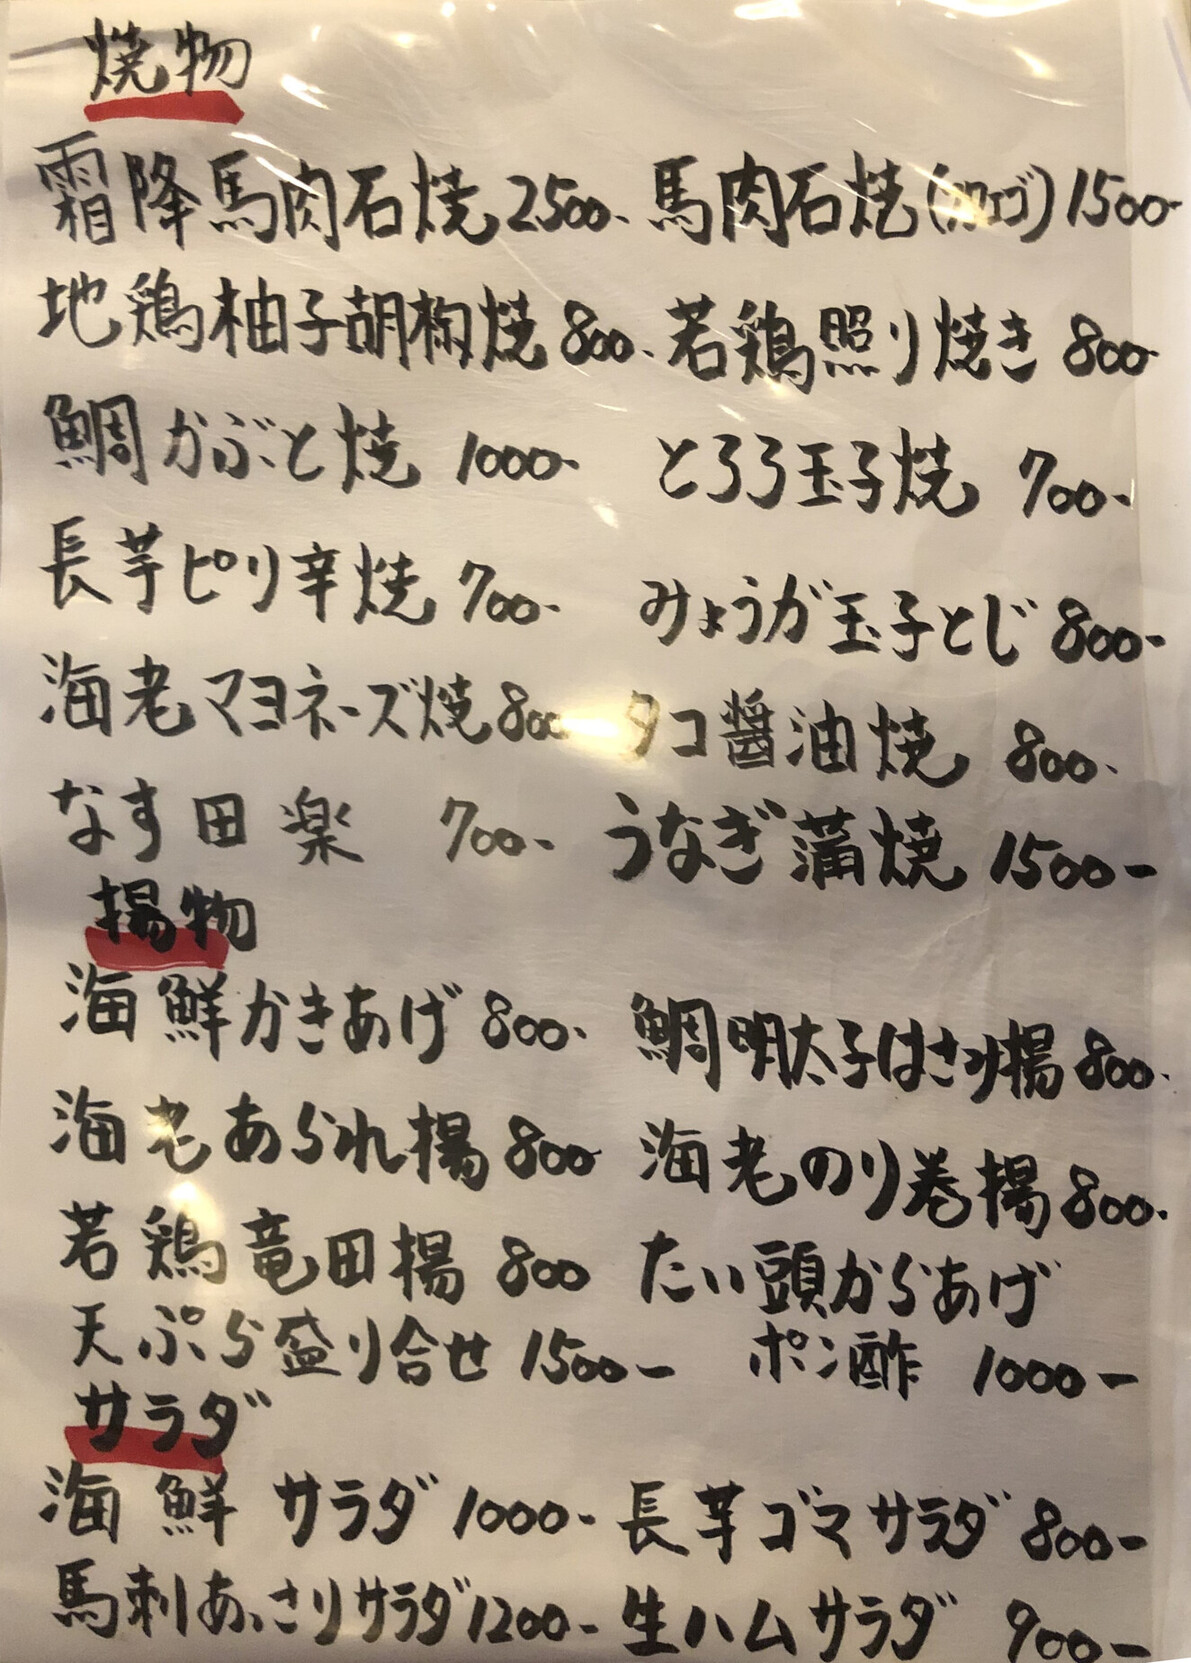 焼物
霜降馬肉石焼 2500- 馬肉石焼(カルゴ) 1500-
地鶏柚子胡椒焼 800- 若鶏照り焼き 800-
鯛かぶと焼 1000- とろろ玉子焼 700-
長芋ピリ辛焼 700- みょうが玉子とじ 800-
海老マヨネーズ焼 800 タコ醤油焼 800-
なす田楽 700- うなぎ蒲焼 1500-
揚物
海鮮かきあげ 800- 鯛明太子はさみ揚 800-
海老あられ揚 800- 海老のり巻揚 800-
若鶏竜田揚 800 たい頭からあげ
天ぷら盛り合せ 1500- ポン酢 1000-
サラダ
海鮮サラダ 1000- 長芋ゴマサラダ 800-
馬刺あっさりサラダ 1200- 生ハムサラダ 900-